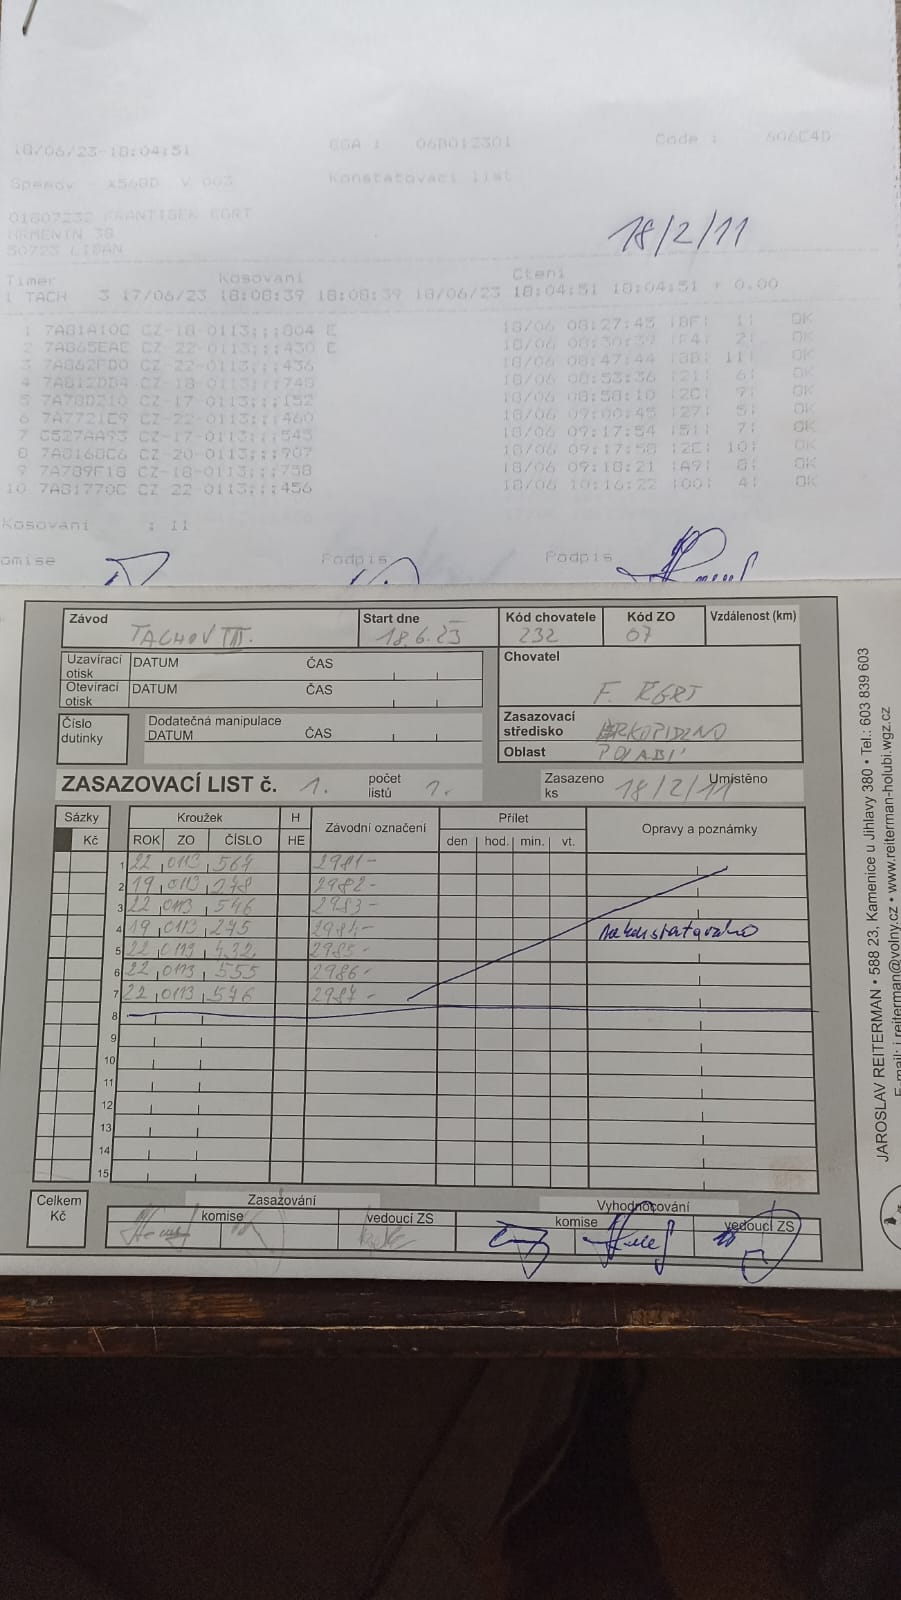 18/06/23-18:04:51 EGA : 06B012301 Code : 606E4D
V 003 Konstatovací list
01607232 FRANTISEK EGRT
18/2/11
50723 LIBAN
Timer Kosovani Cteni
1 TACH 3 17/06/23 18:08:39 18:08:39 18/06/23 18:04:51 18:04:51 + 0.00
1 7A81A10C CZ-18-0113;;;804 E 18/06 08:27:45 18F1 1: OK
2 7A865EAE CZ-22-0113;;;430 E 18/06 08:30:39 2: OK
3 7A862FD0 CZ-22-0113;;;436 18/06 08:47:44 11: OK
4 7A812DB4 CZ-18-0113;;;748 18/06 08:53:36 6: OK
5 7A78D210 CZ-17-0113;;;152 18/06 08:58:10 9: OK
6 7A7721E9 CZ-22-0113;;;460 18/06 09:00:45 5: OK
7 C527AA93 CZ-17-0113;;;545 18/06 09:17:54 7: OK
8 7A8168C6 CZ-20-0113;;;907 18/06 09:17:58 10: OK
9 7A789F18 CZ-18-0113;;;758 18/06 09:18:21 8: OK
10 7A81770C CZ-22-0113;;;456 18/06 10:16:22 4: OK
Kosovani : 11
omise Podpis Podpis
Závod TACHOV III. Start dne 18.6.23 Kód chovatele 232 Kód ZO 07 Vzdálenost (km)
Uzavírací otisk DATUM ČAS
Otevírací otisk DATUM ČAS
Chovatel F. EGRT
Číslo dutinky Dodatečná manipulace DATUM ČAS
Zasazovací středisko KOPIDLNO
Oblast POLABÍ
ZASAZOVACÍ LIST č. 1. počet listů 1. Zasazeno ks 18/2/11 Umístěno
Sázky Kroužek H Závodní označení Přílet Opravy a poznámky
Kč ROK ZO ČÍSLO HE den hod. min. vt.
1 22 0113 564 2981-
2 19 0113 278 2982-
3 22 0113 546 2983-
4 19 0113 275 2984- nekonstatováno
5 22 0113 432 2985-
6 22 0113 555 2986-
7 22 0113 576 2987-
8
9
10
11
12
13
14
15
Celkem Kč Zasazování Vyhodnocování
komise vedoucí ZS komise vedoucí ZS
JAROSLAV REITERMAN • 588 23, Kamenice u Jihlavy 380 • Tel.: 603 839 603
E-mail: j.reiterman@volny.cz • www.reiterman-holubi.wgz.cz